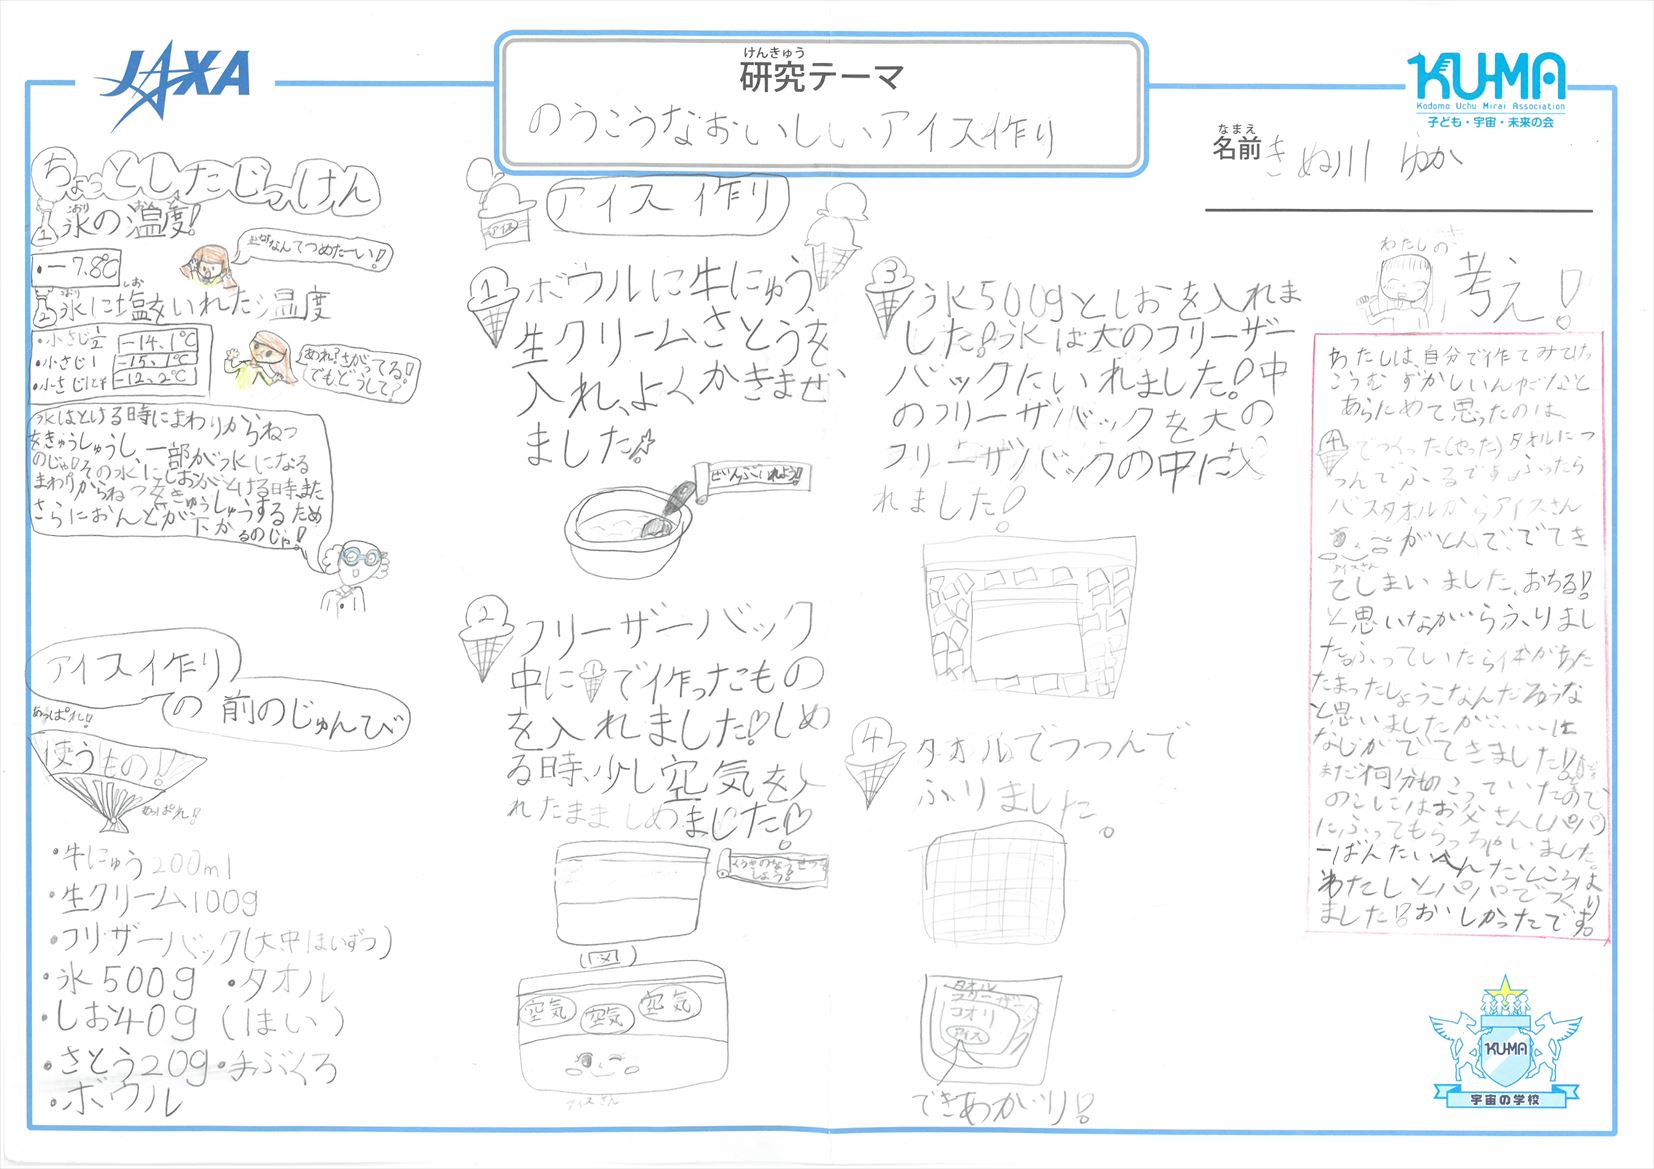 JAXA
けんきゅう
研究テーマ
のうこうなおいしいアイス作り
KU-MA
Kodomo Uchu Mirai Association
子ども・宇宙・未来の会
なまえ
名前 きぬ川 ゆか
ちょっとしたじっけん
1 氷の温度!
こおり おんど
・-7.8℃
なんてつめたーい!
2 氷に塩をいれた温度
こおり しお
・小さじ1/2 -14.1℃
・小さじ1 -15.1℃
-12.2℃
あれ?さがってる!
でもどうして?
氷はとける時にまわりからねつ
をきゅうしゅうし、一部が水になる
のじゃ!その水にしおがとける時、また
まわりからねつをきゅうしゅうするため
さらにおんどが下がるのじゃ!
アイス作り
の前のじゅんび
あっぱれ!
使うもの!
あっぱれ!
・牛にゅう200ml
・生クリーム100g
・フリザーバック(大中1まいずつ)
・氷500g ・タオル
・しお40g (1まい)
・さとう20g ・手ぶくろ
・ボウル
アイス作り
アイス
1 ボウルに牛にゅう、
生クリームさとうを
入れ、よくかきまぜ
ました!
ぜんぶいれよう!
2 フリーザーバック
中に1で作ったもの
を入れました!しめ
る時、少し空気を入
れたまましめました!
(図)
空気 空気 空気
アイスさん
3 氷500gとしおを入れま
した!氷は大のフリーザー
バックにいれました!中
のフリーザバックを大の
フリーザバックの中に入
れました!
4 タオルでつつんで
ふりました。
タオル
フリーザー
コオリ
アイス
できあがり!
わたしの
考え!
わたしは自分で作てみてけっ
こうむずかしいんだなと
あらためて思ったのは、
4でつくった(やった)タオルにつ
つんでふるですふったら
バスタオルからアイスさん
アイスさん
がとんで、でてき
てしまいました、おちる!
と思いながらふりまし
た。ふっていたら体があた
たまったしょうこなんだろうな
と思いましたが・・・・・は
なじがでてきました!
まだ何分かのこっていたので、
のこしにはお父さん(パパ)
にふってもらっちゃいました。
一ばんたいへんだところは
わたしとパパでつくり
ました!おいしかったです。
KU-MA
宇宙の学校